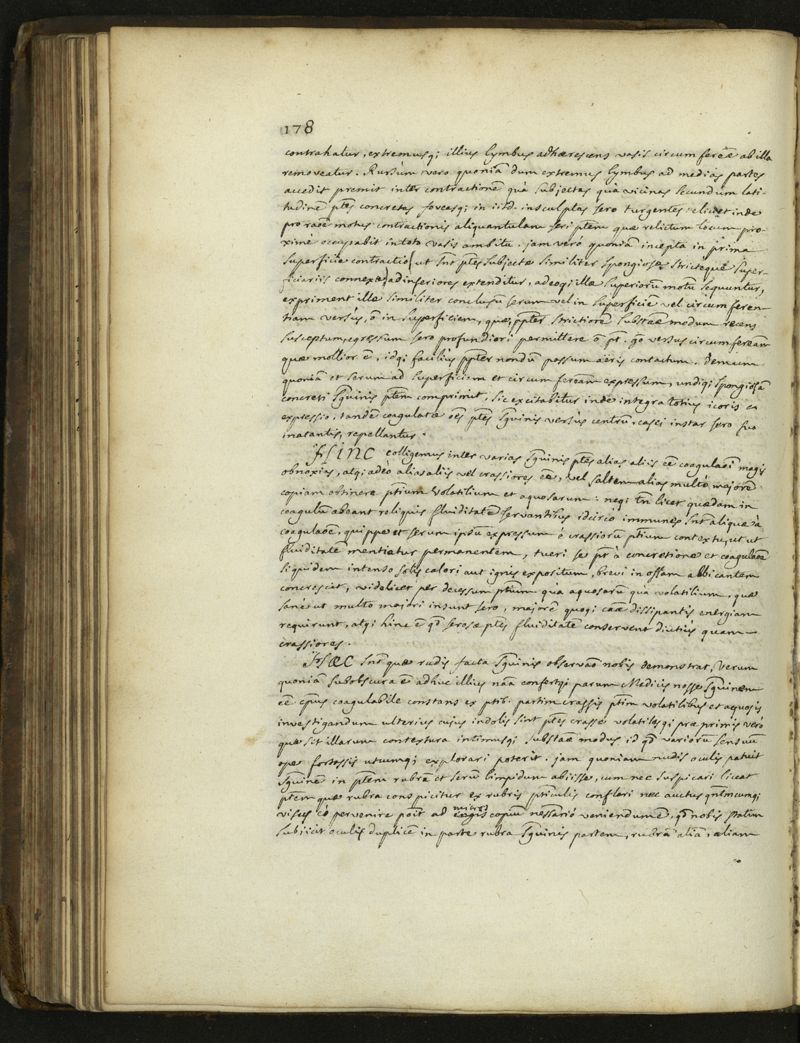 178
contrahatur, extremusq; illius lymbus adhærescens vasis circumfereæ ab illa
removeatur. Rursùm vero quoniā dum extremus lymbus ad medias partes
accedit premit inter contractionē quà subjectas quà vicinas secundum lati-
tudinē ptes concretas foveasq; in iisd. insculptas sero turgentes elicit inde
pro raōe motus contractionis aliquantulam seri ptem quæ relictum locum pro-
xime occupabit in toto vasis ambitu. jam verò quoniam incepta in prima
superficie contractio, ut snt ptes subjectæ similiter spongiosæ stricteque super-
ficiariis connexæ, ad inferiores extenditur, adeoq; illæ superiorū motū sequuntur,
expriment illæ similiter conclusū serum vel in superficiē vel circumferen-
tiam versùs, ō in superficiem, quæ ppter strictiorē substāæ modum recens
susceptum, egressum sero profundiori permittere ō pt. gō versus circumfereām
quæ mollior ē, idq; facilius ppter nondū passum aeris contactum. Demum
quoniā et serum ad superficiem et circumfereām expressum, undiq; spongiosā
concreti sguinis ptem comprimit, sic excitabitur inde integra totius icoris ex
expressio, tandē coagulatæ oēs ptes sguinis versùs centrū, casei instar sero suo
inatantis, repellantur.
HINC colligemus inter varias sguinis ptes alias aliis eē coagulaōi magis
obnoxias, atq; adeò alias aliis vel crassiores eē, vel saltem alias multò majorē
copiam obtinere ptium volatilium et aquosarum: neq; tn licet quædam in
coagulū abeant reliquis fluiditatē servantibus idcircò immunes snt aliquæ à
coagulaōe, quippe et serum ipsū expressum ō crassiorū ptium contextu, ut ut
fluiditatē mentiatur permanentem, tueri se pt à concretione et coagulaōe
siquidem intenso solis calori aut ignis expositum, brevi in offam albicantem
concrescit, videlicet per decessum ptium quà aquosarū quà volatilium, quæ
sanè ut multò majori insunt sero, majorē quoq; caæ dissipantis energiam
requirunt, atq; hinc ē qd serosæ ptes fluiditatē conservent diutiùs quam
crassiores.
HÆC snt quæ rudis facta sguinis observaō nobis demonstrat, verum
quoniā subobscura ē adhuc illius naā confertq; parum Medicis nosse sguinem
eē cpus coagulabile constans ex ptib. partim crassis ptim volatilibus et aquosis
investigandum ulteriùs cujus indolis sint ptes crassæ volatilesq; præprimis verò
quæ sit illarum contextura intimusq; substāæ modus id qd variorū sensuū
ope fortassis utcumq; explorari poterit. jam quoniam nudis oculis patuit
sguinē in ptem rubrā et serū limpidum abiisse, cum nec suspicari liceat
ptem quæ rubra conspicitur ex rubris pticulis conflari nec auctus qntmcumq;
visus eò pervenire poīt ad microscopium nessariò veniendum ē, qd nobis statim
subjicit oculis duplicē in parte rubra sguinis partem, rubrā aliā, aliam